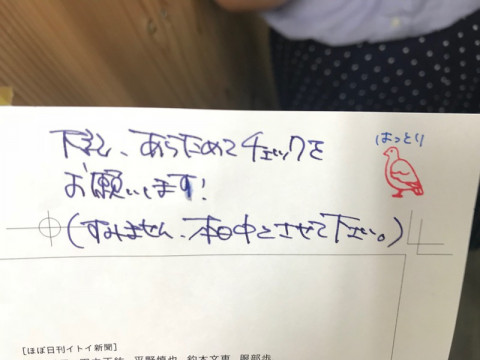 下記、あらためてチェックを
お願いします!
(すみません、本日中とさせて下さい。)
はっとり
[ほぼ日刊イトイ新聞]
平野慎也
服部歩